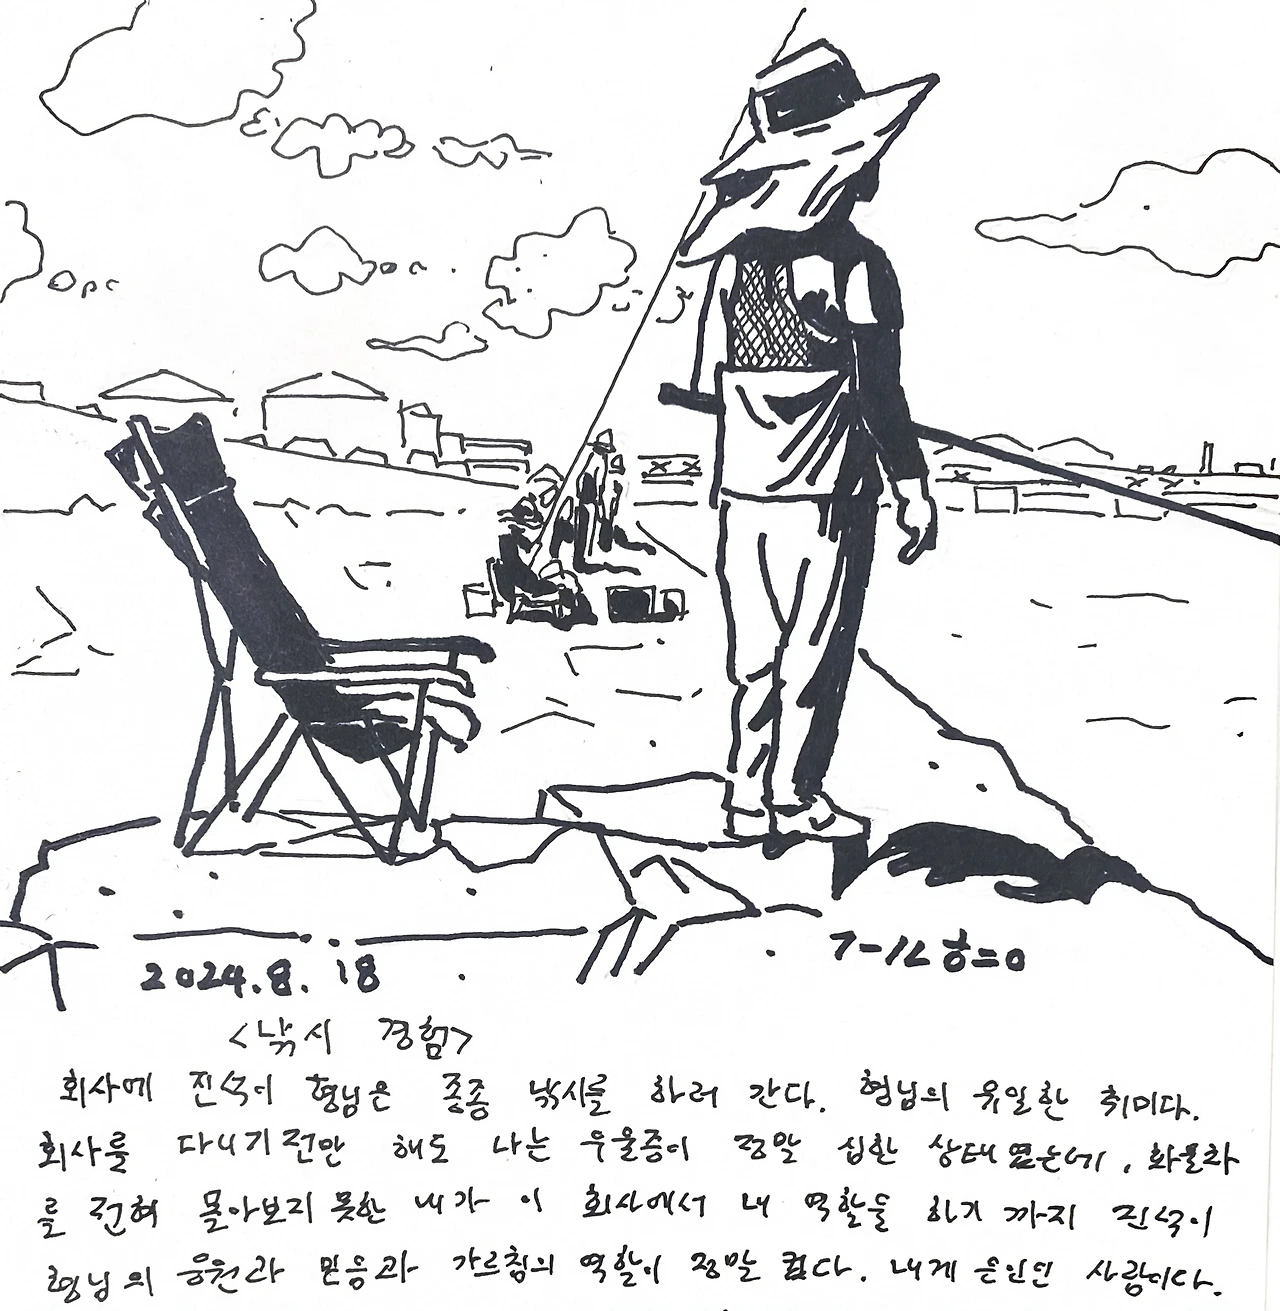 2024.8.18
<낚시 경험>
회사에 진석이 형님은 종종 낚시를 하러 간다. 형님의 유일한 취미다.
회사를 다니기 전만 해도 나는 우울증이 정말 심한 상태였는데, 화물차
를 전혀 몰아보지 못한 내가 이 회사에서 내 역할을 하기 까지 진석이
형님의 응원과 믿음과 가르침의 역할이 정말 컸다. 내게 은인인 사람이다.